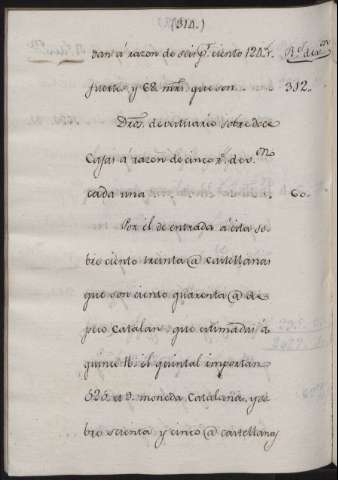 (314.)
dan á razon de seis p.r ciento 124 r.s R.s de v.on
fuertes y 68 mrs. que son 312..
Dros. de vestuario sobre doce
Cajas á razon de cinco r.s de v.on
cada una 60..
Por el de entrada á esta so
bre ciento treinta @ castellanas
que son ciento quarenta @ de
peso catalan, que estimadas á
quince ll. el quintal importan
525. ll 9. moneda Catalana, y so
bre setenta y cinco @ castellanas